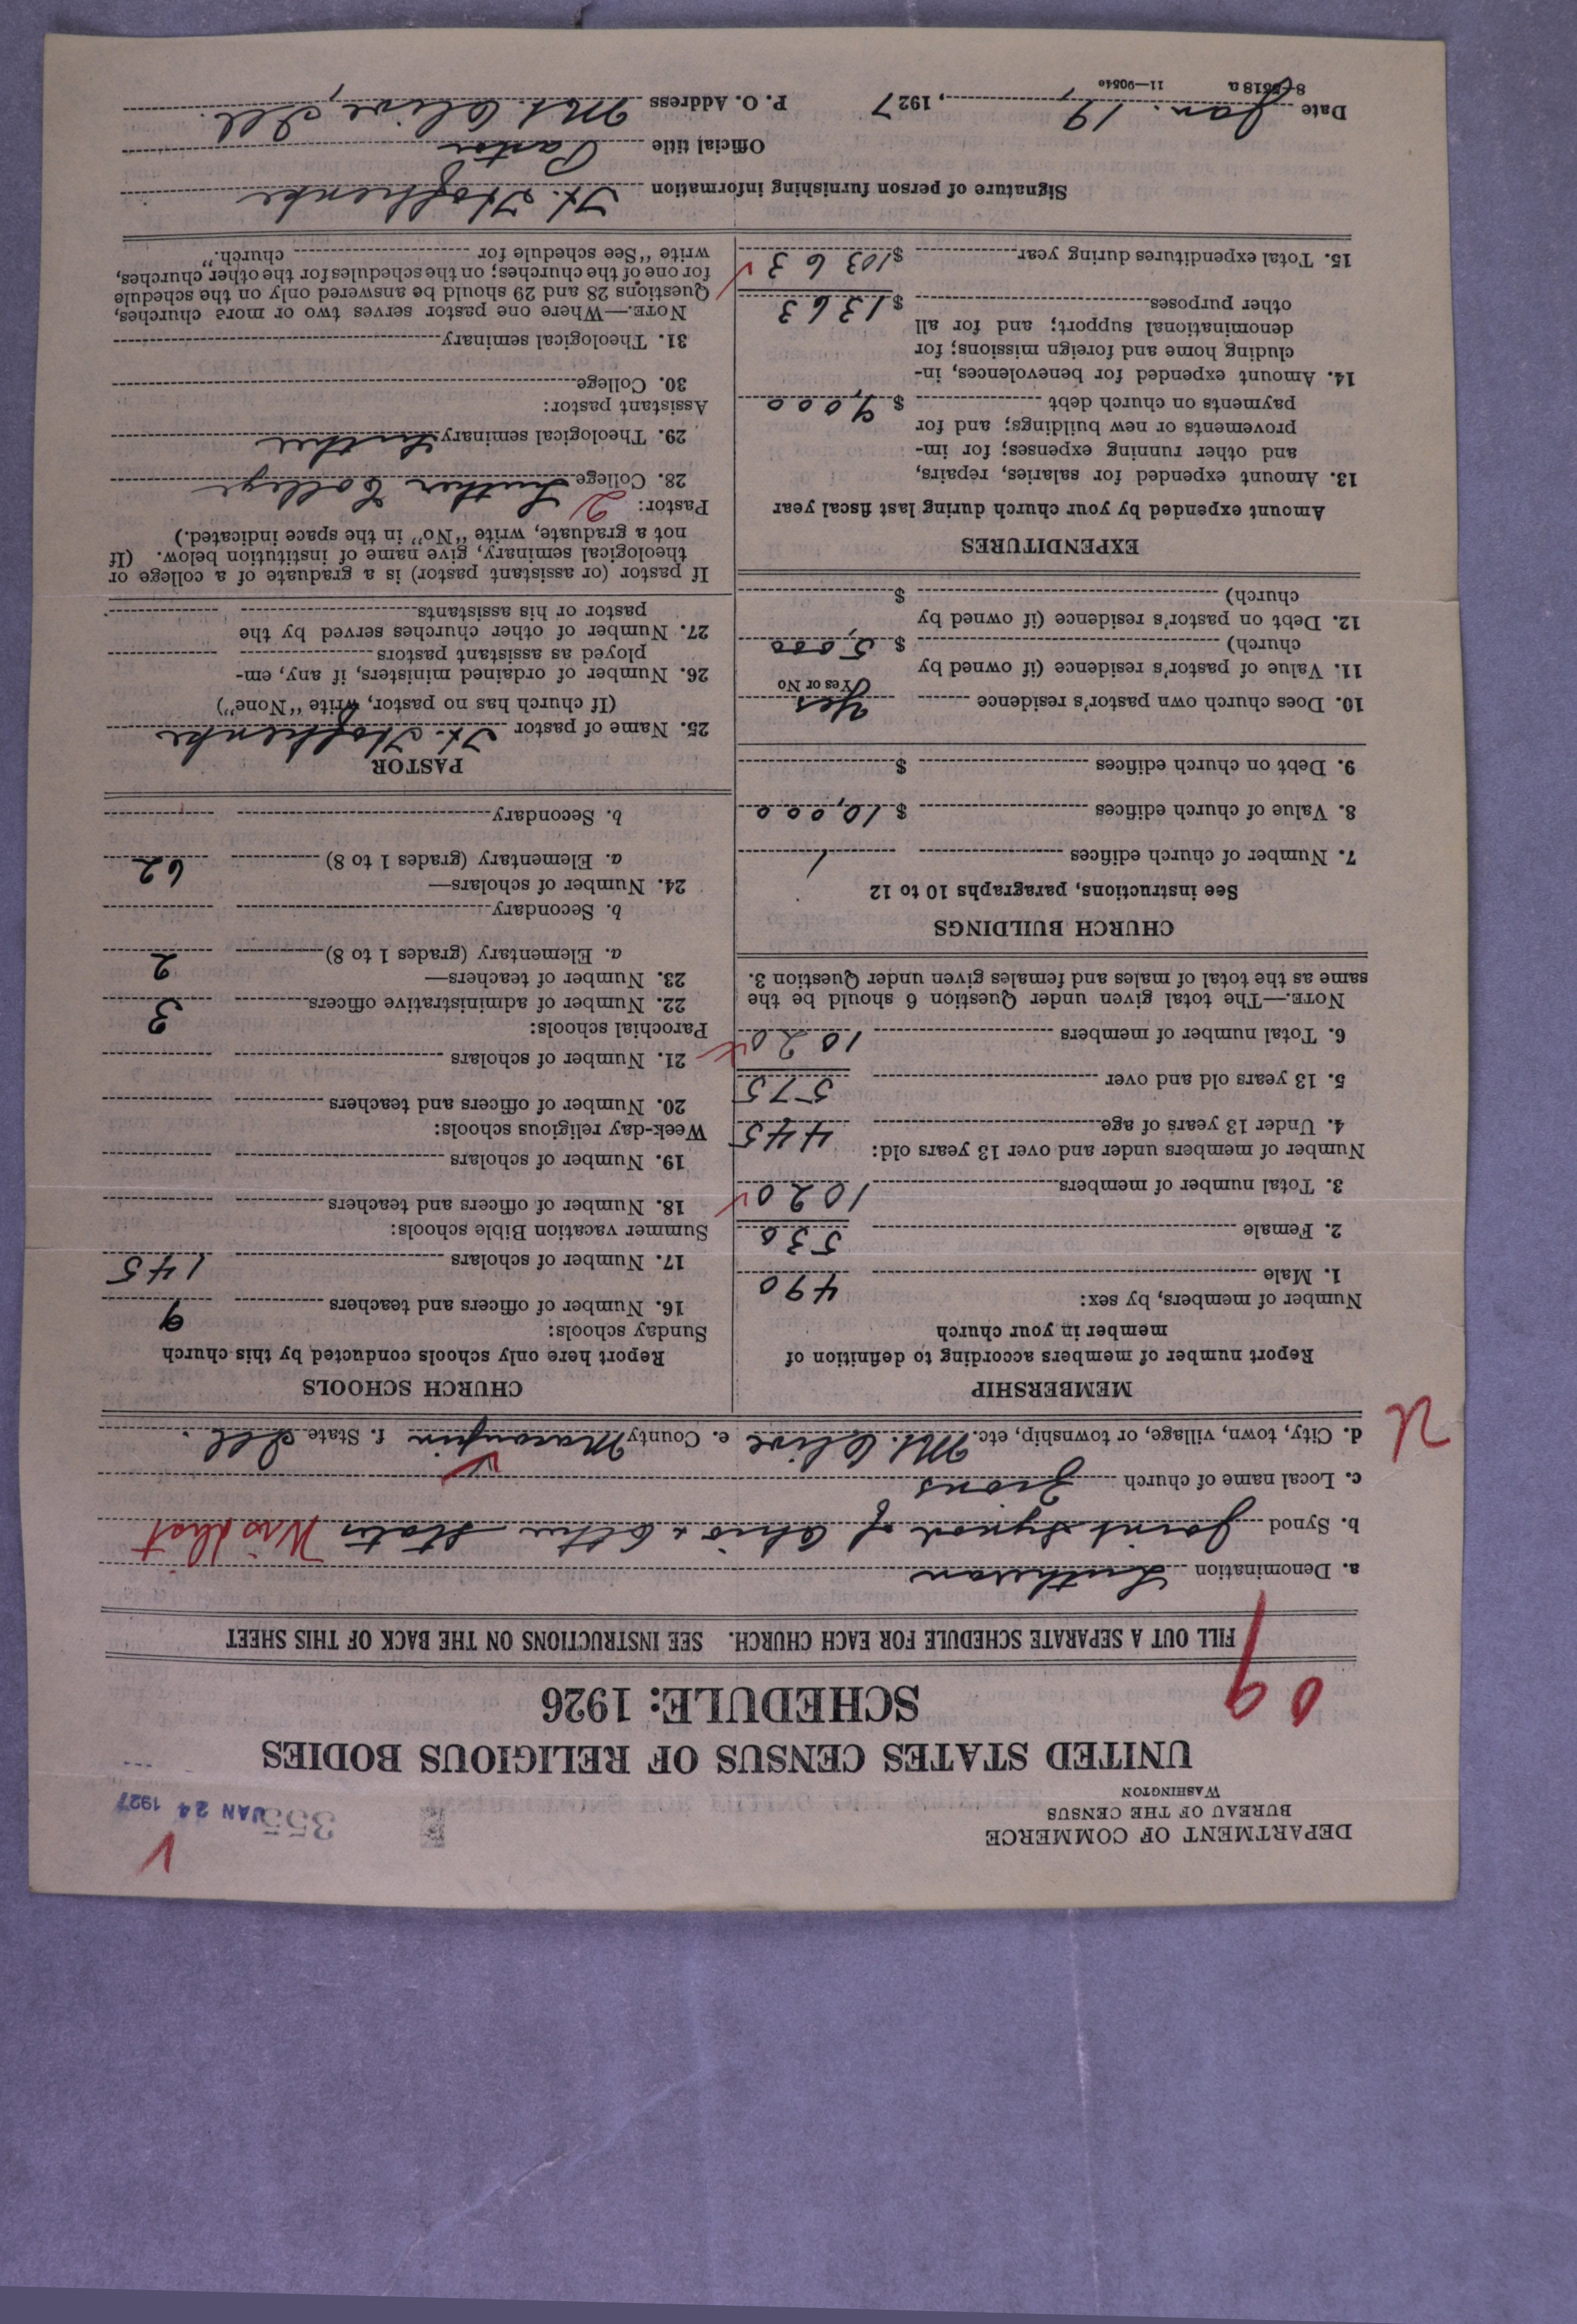 DEPARTMENT OF COMMERCE
BUREAU OF THE CENSUS
WASHINGTON
355
JAN 24 1927
UNITED STATES CENSUS OF RELIGIOUS BODIES
SCHEDULE: 1926
FILL OUT A SEPARATE SCHEDULE FOR EACH CHURCH. SEE INSTRUCTIONS ON THE BACK OF THIS SHEET
a. Denomination Lutheran
b. Synod Joint Synod of Ohio & Other States
c. Local name of church Zions
d. City, town, village, or township, etc. Mt. Olive e. County Macoupin f. State Ill.
MEMBERSHIP
Report number of members according to definition of
member in your church
Number of members, by sex:
1. Male 490
2. Female 530
3. Total number of members 1020
Number of members under and over 13 years old:
4. Under 13 years of age 445
5. 13 years old and over 575
6. Total number of members 1020
NOTE.—The total given under Question 6 should be the
same as the total of males and females given under Question 3.
CHURCH BUILDINGS
See instructions, paragraphs 10 to 12
7. Number of church edifices 1
8. Value of church edifices $ 10,000
9. Debt on church edifices $
10. Does church own pastor's residence Yes
Yes or No
11. Value of pastor's residence (if owned by
church) $ 5,000
12. Debt on pastor's residence (if owned by
church) $
EXPENDITURES
Amount expended by your church during last fiscal year
13. Amount expended for salaries, repairs,
and other running expenses; for im-
provements or new buildings; and for
payments on church debt $ 9,000
14. Amount expended for benevolences, in-
cluding home and foreign missions; for
denominational support; and for all
other purposes $ 1363
15. Total expenditures during year $ 10363
CHURCH SCHOOLS
Report here only schools conducted by this church
Sunday schools:
16. Number of officers and teachers 9
17. Number of scholars 145
Summer vacation Bible schools:
18. Number of officers and teachers
19. Number of scholars
Week-day religious schools:
20. Number of officers and teachers
21. Number of scholars
Parochial schools:
22. Number of administrative officers 3
23. Number of teachers—
a. Elementary (grades 1 to 8) 2
b. Secondary
24. Number of scholars—
a. Elementary (grades 1 to 8) 62
b. Secondary
PASTOR
25. Name of pastor
(If church has no pastor, write "None")
26. Number of ordained ministers, if any, em-
ployed as assistant pastors
27. Number of other churches served by the
pastor or his assistants
If pastor (or assistant pastor) is a graduate of a college or
theological seminary, give name of institution below. (If
not a graduate, write "No" in the space indicated.)
Pastor: 2
28. College Luther College
29. Theological seminary Luther
Assistant pastor:
30. College
31. Theological seminary
NOTE.—Where one pastor serves two or more churches,
Questions 28 and 29 should be answered only on the schedule
for one of the churches; on the schedules for the other churches,
write "See schedule for church."
Signature of person furnishing information
Official title Pastor
Date Jan. 19, 1927 P. O. Address Mt. Olive, Ill.
11—9054a